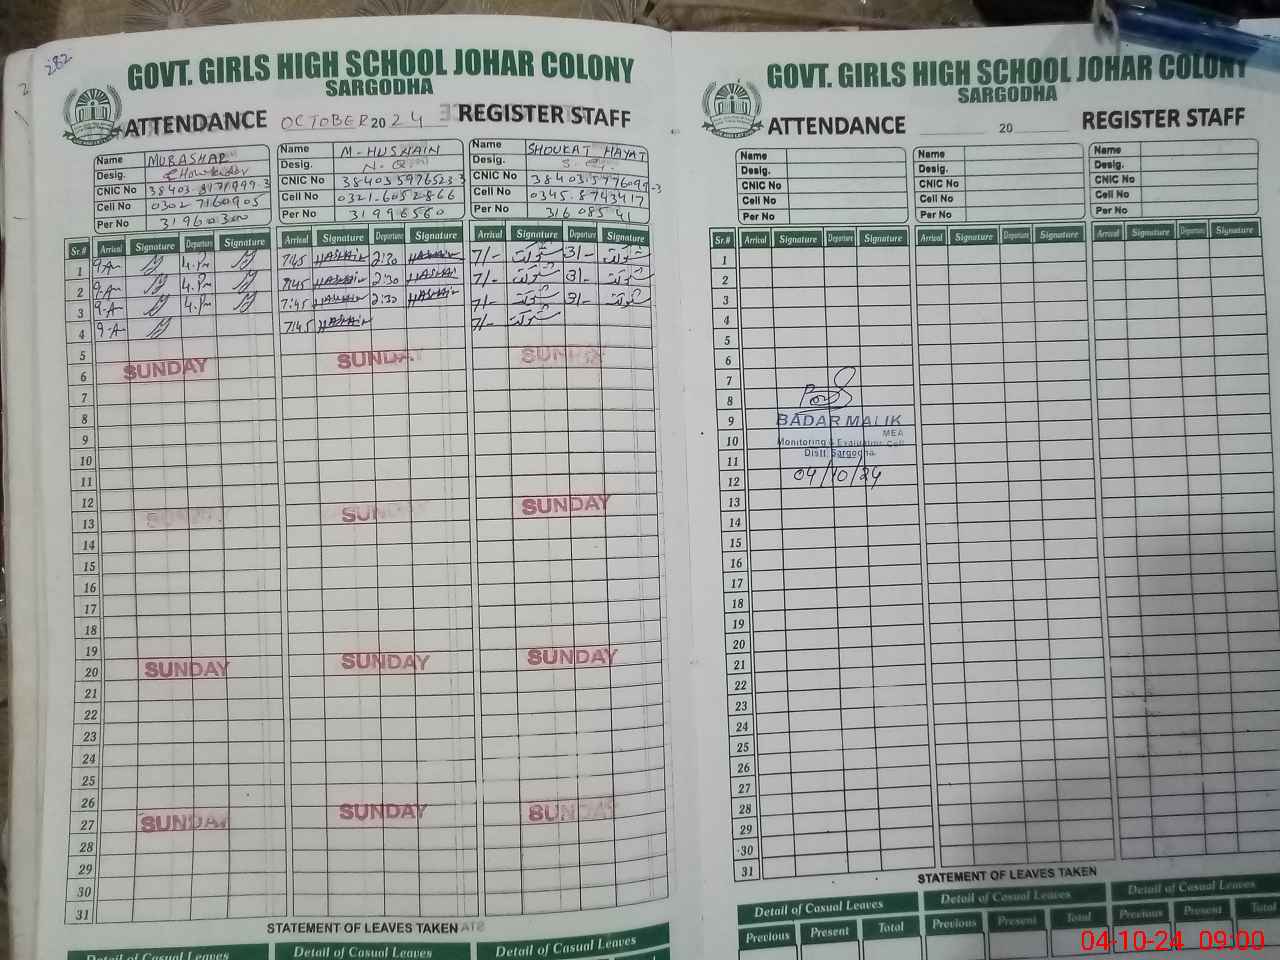 282
GOVT. GIRLS HIGH SCHOOL JOHAR COLONY
SARGODHA
ATTENDANCE OCTOBER 2024 REGISTER STAFF
Name MUBASHAR
Desig.
CNIC No
Cell No 0302 7160905
Per No 31960300
Name M-HUSNAIN
Desig. N-Q
CNIC No 384035976523 3
Cell No 0321-6052866
Per No 31996560
Name SHOUKAT HAYAT
Desig.
CNIC No 384035776099-3
Cell No 0345.8743417
Per No 31608541
Sr.# Arrival Signature Departure Signature Arrival Signature Departure Signature Arrival Signature Departure Signature
1 9-A 4.Pm 7:45 HASNAIN 2:30 HASNAIN 7/- شوکت 3/- شوکت
2 9-A 4.Pm 7:45 HASNAIN 2:30 HASNAIN 7/- شوکت 3/- شوکت
3 9-A 4.Pm 7:45 HASNAIN 2:30 HASNAIN 7/- شوکت 3/- شوکت
4 9-A 7:45 HASNAIN 7/- شوکت
5
6 SUNDAY SUNDAY SUNDAY
7
8
9
10
11
12
13 SUNDAY SUNDAY SUNDAY
14
15
16
17
18
19
20 SUNDAY SUNDAY SUNDAY
21
22
23
24
25
26
27 SUNDAY SUNDAY SUNDAY
28
29
30
31
STATEMENT OF LEAVES TAKEN
Detail of Casual Leaves Detail of Casual Leaves Detail of Casual Leaves
GOVT. GIRLS HIGH SCHOOL JOHAR COLONY
SARGODHA
ATTENDANCE 20 REGISTER STAFF
Name
Desig.
CNIC No
Cell No
Per No
Name
Desig.
CNIC No
Cell No
Per No
Name
Desig.
CNIC No
Cell No
Per No
Sr.# Arrival Signature Departure Signature Arrival Signature Departure Signature Arrival Signature Departure Signature
1
2
3
4
5
6
7
8
9 BADAR MALIK
MEA
10 Monitoring & Evaluation Cell
11 Distt. Sargodha
12 04/10/24
13
14
15
16
17
18
19
20
21
22
23
24
25
26
27
28
29
30
31
STATEMENT OF LEAVES TAKEN
Detail of Casual Leaves Detail of Casual Leaves Detail of Casual Leaves
Previous Present Total Previous Present Total Previous Present Total
04-10-24 09:00